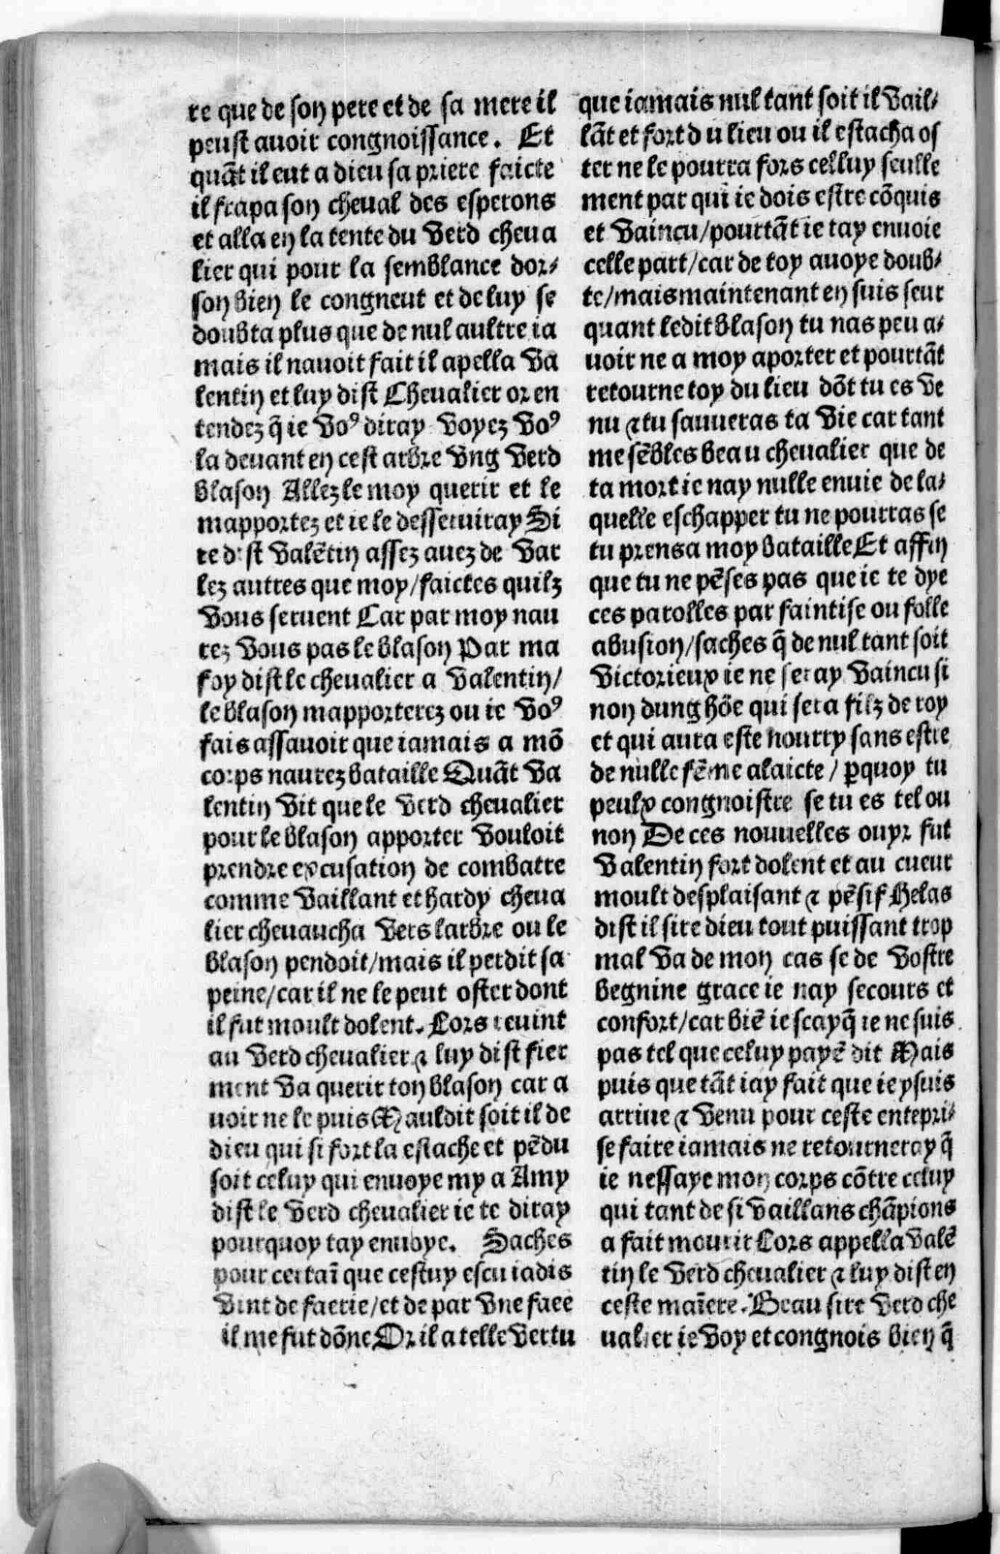 re que de son pere et de sa mere il
peust auoir congnoissance. Et
quãt il eut a dieu sa priere faicte
il frapa son cheual des esperons
et alla en la tente du Verd cheua
lier qui pour la semblance dor/
son bien le congneut et de luy se
doubta plus que de nul aultre ia
mais il nauoit fait il apella Va
lentin et luy dist Cheualier or en
tendez q̃ ie Voꝰ diray Voyez Voꝰ
la deuant en cest arbre Vng Verd
blason Allez le moy querir et le
mapportez et ie le desseruiray Si
re dist Valẽtin assez auez de Var
lez autres que moy/faictes quilz
Vous seruent Car par moy nau
rez Vous pas le blason Par ma
foy dist le cheualier a Valentin/
le blason mapporterez ou ie Voꝰ
fais assauoir que iamais a mõ
corps naurez bataille Quãt Va
lentin Vit que le Verd cheualier
pour le blason apporter Vouloit
prendre excusation de combatre
comme Vaillant et hardy cheua
lier cheuaucha Vers larbre ou le
blason pendoit/mais il perdit sa
peine/car il ne le peut oster dont
il fut moult dolent. Lors reuint
au Verd cheualier ⁊ luy dist fier
ment Va querir ton blason car a
uoir ne le puis Mauldit soit il de
dieu qui si fort la estache et pẽdu
soit celuy qui enuoye my a Amy
dist le Verd cheualier ie te diray
pourquoy tay enuoye. Saches
pour certaĩ que cestuy escu iadis
Vint de faerie/et de par Vne faee
il me fut dõne Or il a telle Vertu
que iamais nul tant soit il Vail/
lãt et fort du lieu ou il estacha os
ter ne le pourra fors celluy seulle
ment par qui ie dois estre cõquis
et Vaincu/pourtãt ie tay enuoie
celle part/car de toy auoye doub/
te/mais maintenant en suis seur
quant ledit blason tu nas peu a/
uoir ne a moy aporter et pourtãt
retourne toy du lieu dõt tu es Ve
nu ⁊ tu sauueras ta Vie car tant
me sẽbles beau cheualier que de
ta mort ie nay nulle enuie de la/
quelle eschapper tu ne pourras se
tu prens a moy bataille Et affin
que tu ne pẽses pas que ie te dye
ces parolles par faintise ou folle
abusion/saches q̃ de nul tant soit
Victorieux ie ne seray Vaincu si
non dung hõe qui sera filz de roy
et qui aura este nourry sans estre
de nulle fẽme alaicte/ ꝑquoy tu
peulx congnoistre se tu es tel ou
non De ces nouuelles ouyr fut
Valentin fort dolent et au cueur
moult desplaisant ⁊ pẽsif Helas
dist il sire dieu tout puissant trop
mal Va de mon cas se de Vostre
begnine grace ie nay secours et
confort/car biẽ ie scay q̃ ie ne suis
pas tel que celuy payẽ dit Mais
puis que tãt iay fait que ie y suis
arriue ⁊ Venu pour ceste entepri/
se faire iamais ne retourneray q̃
ie nessaye mon corps cõtre celuy
qui tant de si Vaillans chãpions
a fait mourir Lors appella Valẽ
tin le Verd cheualier ⁊ luy dist en
ceste maĩere. Beau sire Verd che
ualier ie Voy et congnois bien q̃